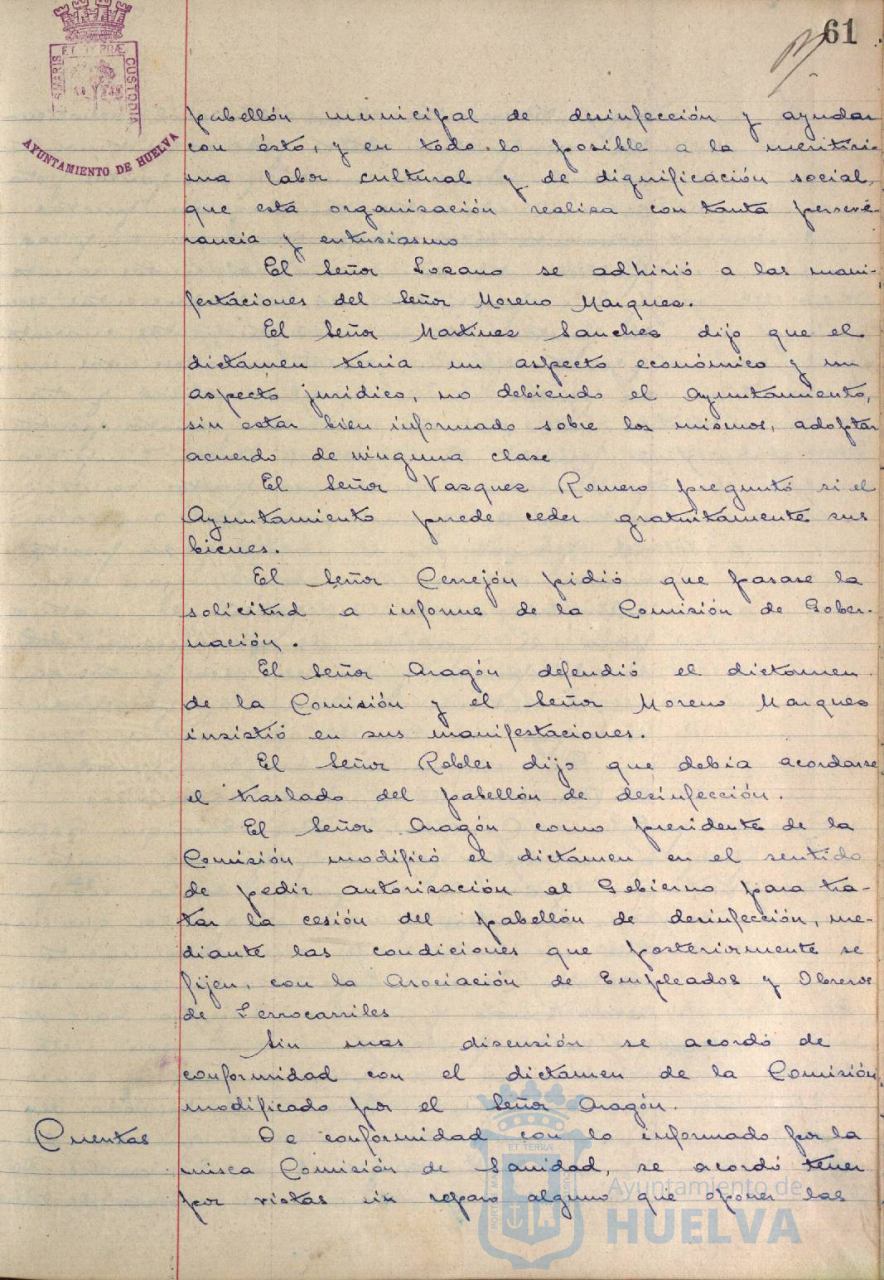 61
AYUNTAMIENTO DE HUELVA
pabellón municipal de desinfección y ayudar
con ésto, y en todo lo posible a la meritisi-
ma labor cultural y de dignificación social,
que está organización realisa con tanta persevé-
rancia y entusiasmo
El Señor Lozano se adhirió a las mani-
festaciones del Señor Moreno Marques.
El Señor Martines Sanches dijo que el
dictamen tenia un aspecto económico y un
aspecto juridico, no debiendo el Ayuntamiento,
sin estar bien informado sobre los mismos, adoptar
acuerdo de ninguna clase
El Señor Vazquez Romero preguntó si el
Ayuntamiento puede ceder gratuitamente sus
bienes.
El Señor Cerrejón pidió que pasase la
solicitud a informe de la Comisión de Gober-
nación.
El Señor Aragón defendió el dictamen
de la Comisión y el Señor Moreno Marques
insistió en sus manifestaciones.
El Señor Robles dijo que debia acordarse
el traslado del pabellón de desinfección.
El Señor Aragón como presidente de la
Comisión modificó el dictamen en el sentido
de pedir autorisación al Gobierno para tra-
tar la cesión del pabellón de desinfección, me-
diante las condiciones que posteriormente se
fijen, con la Asociación de Empleados y Obreros
de Ferrocarriles
Sin mas discusión se acordó de
conformidad con el dictamen de la Comisión
modificado por el Señor Aragón.
Cuentas
De conformidad con lo informado por la
misca Comisión de Sanidad, se acordó tener
por vistas sin reparo alguno que oponer las
Ayuntamiento de
HUELVA